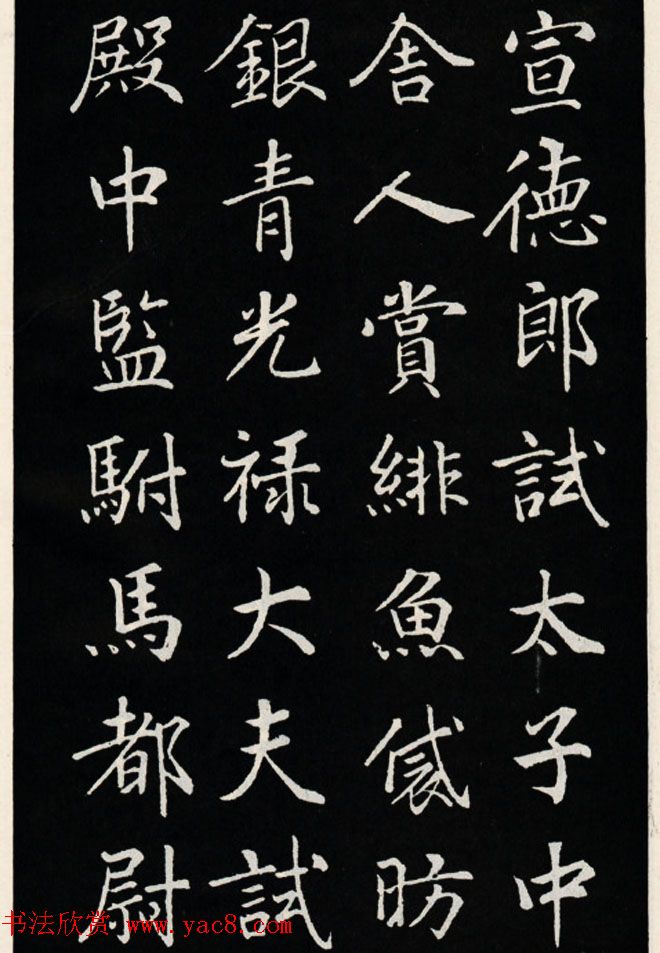 宣德郎試太子中
舎人賞緋魚袋昉
銀青光禄大夫試
殿中監駙馬都尉
书法欣赏 www.yac8.com